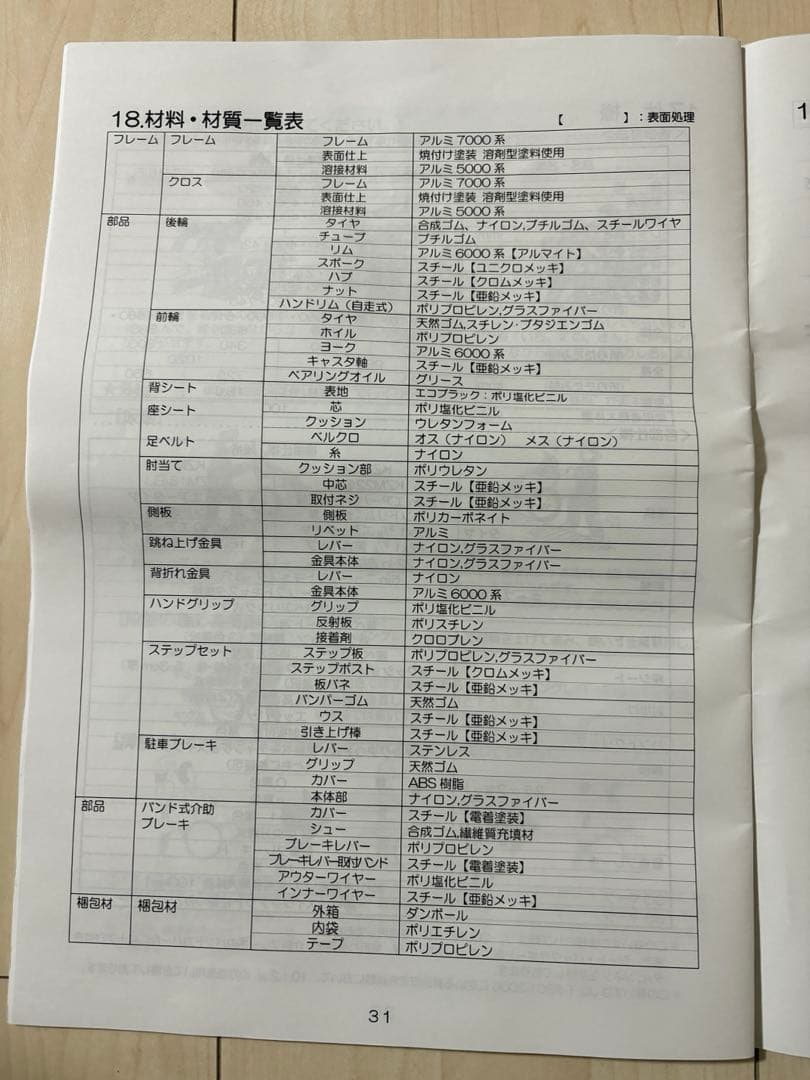 18.材料・材質一覧表 【　　　　】：表面処理
フレーム フレーム フレーム アルミ7000系
表面仕上 焼付け塗装 溶剤型塗料使用
溶接材料 アルミ5000系
クロス フレーム アルミ7000系
表面仕上 焼付け塗装 溶剤型塗料使用
溶接材料 アルミ5000系
部品 後輪 タイヤ 合成ゴム、ナイロン,ブチルゴム、スチールワイヤ
チューブ ブチルゴム
リム アルミ6000系【アルマイト】
スポーク スチール【ユニクロメッキ】
ハブ スチール【クロムメッキ】
ナット スチール【亜鉛メッキ】
ハンドリム（自走式） ポリプロピレン,グラスファイバー
前輪 タイヤ 天然ゴム,スチレン・ブタジエンゴム
ホイル ポリプロピレン
ヨーク アルミ6000系
キャスタ軸 スチール【亜鉛メッキ】
ベアリングオイル グリース
背シート 表地 エコブラック：ポリ塩化ビニル
座シート 芯 ポリ塩化ビニル
クッション ウレタンフォーム
足ベルト ベルクロ オス（ナイロン）　メス（ナイロン）
糸 ナイロン
肘当て クッション部 ポリウレタン
中芯 スチール【亜鉛メッキ】
取付ネジ スチール【亜鉛メッキ】
側板 側板 ポリカーボネイト
リベット アルミ
跳ね上げ金具 レバー ナイロン,グラスファイバー
金具本体 ナイロン,グラスファイバー
背折れ金具 レバー ナイロン
金具本体 アルミ6000系
ハンドグリップ グリップ ポリ塩化ビニル
反射板 ポリスチレン
接着剤 クロロプレン
ステップセット ステップ板 ポリプロピレン,グラスファイバー
ステップポスト スチール【クロムメッキ】
板バネ スチール【亜鉛メッキ】
バンパーゴム 天然ゴム
ウス スチール【亜鉛メッキ】
引き上げ棒 スチール【亜鉛メッキ】
駐車ブレーキ レバー ステンレス
グリップ 天然ゴム
カバー ABS樹脂
本体部 ナイロン,グラスファイバー
部品 バンド式介助 カバー スチール【電着塗装】
ブレーキ シュー 合成ゴム,繊維質充填材
ブレーキレバー ポリプロピレン
ブレーキレバー取付バンド スチール【電着塗装】
アウターワイヤー ポリ塩化ビニル
インナーワイヤー スチール【亜鉛メッキ】
梱包材 梱包材 外箱 ダンボール
内袋 ポリエチレン
テープ ポリプロピレン
31
1